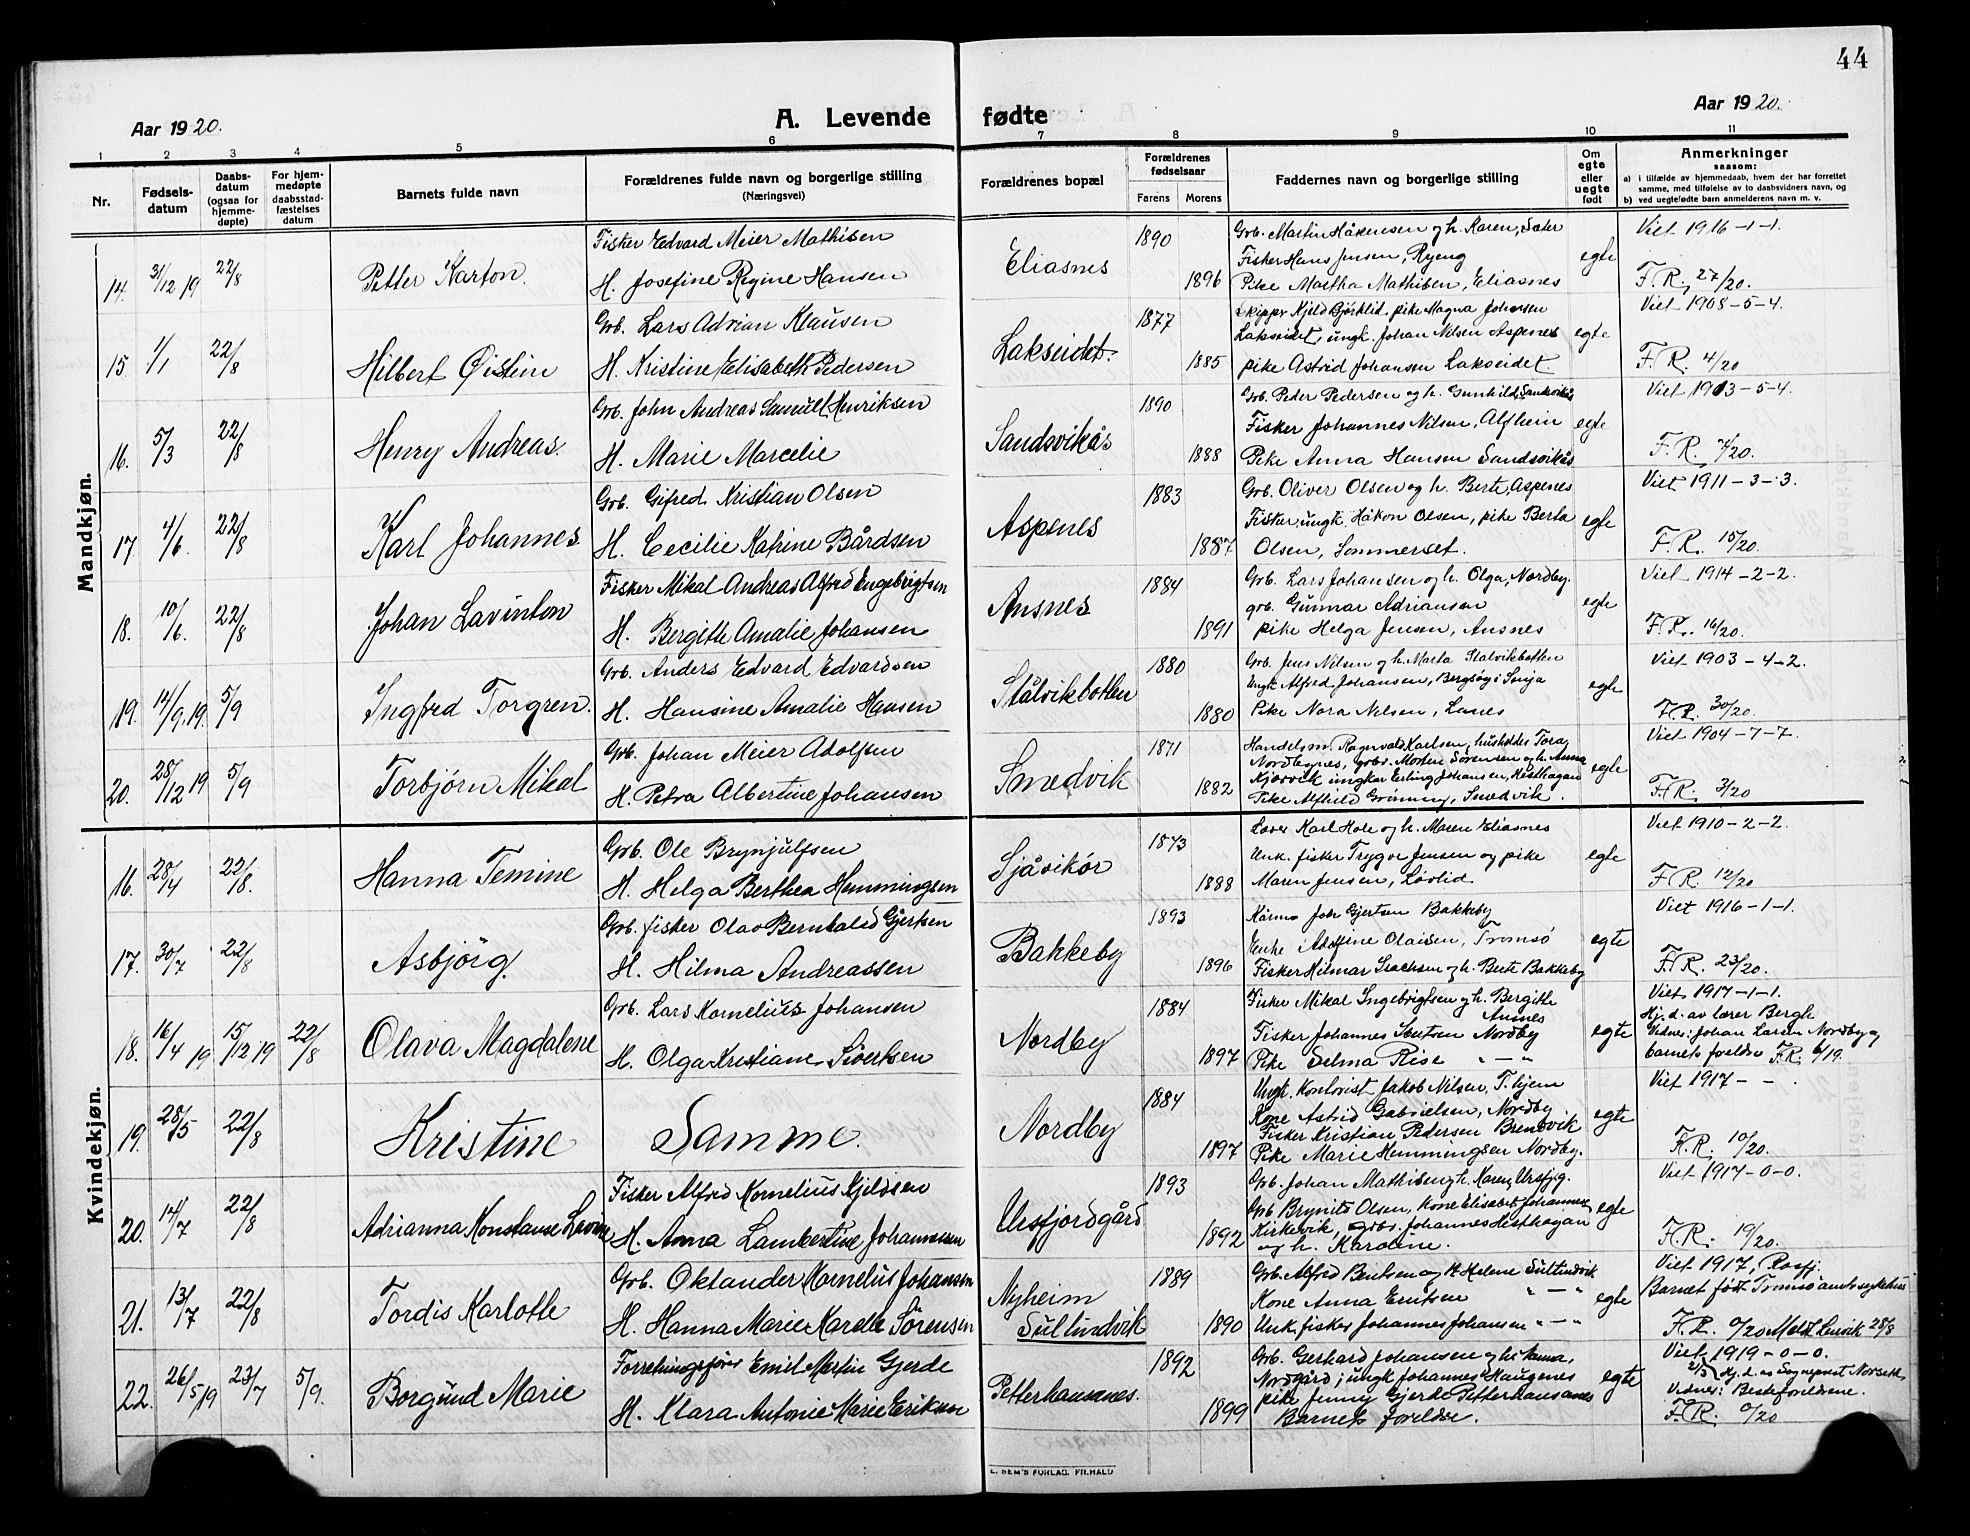 44
Aar 1920.
A. Levende fødte
Aar 1920.
1 2 3 4 5 6 7 8 9 10 11
Nr.
Fødsels-
datum
Daabs-
datum
(ogsaa for
hjemme-
døpte)
For hjem-
medøpte
daabsstad-
fæstelses
datum
Barnets fulde navn
Forældrenes fulde navn og borgerlige stilling
(Næringsvei)
Forældrenes bopæl
Forældrenes
fødselsaar
Farens Morens
Faddernes navn og borgerlige stilling
Om
egte
eller
uegte
født
Anmerkninger
saasom:
a) i tilfælde av hjemmedaab, hvem der har forrettet
samme, med tilføielse av to daabsvidners navn, og
b) ved uegtefødte barn anmelderens navn m. v.
Mandkjøn.
14. 31/12 19 22/8 Petter Karton.
Fisker Edvard Meier Mathisen
H. Josefine Regine Hansen
Eliasnes 1890 1896
Grb. Martin Håkensen og h. Karen, Sæter
Fisker Hans Jensen, Ryeng
Pike Martha Mathisen, Eliasnes
egte
Viet 1916-1-1.
F.R. 27/20.
15. 1/1 22/8 Hilbert Øistein
Grb. Lars Adrian Klausen
H. Kristine Elisabeth Pedersen
Lakseidet. 1877 1885
Skipper Kjeld Bjørklid, pike Magna Johansen
Lakseidet, ungk. Johan Nilsen Aspenes
pike Astrid Johansen Lakseidet.
egte
Viet 1908-5-4.
F.R. 4/20
16. 5/3 22/8 Henry Andreas.
Grb. John Andreas Samuel Henriksen
H. Marie Marcelie
Sandsvikås 1890 1888
Grb. Peder Pedersen og h. Gunhild, Sandsvikås
Fisker Johannes Nilsen, Alfheim
Pike Anna Hansen Sandsvikås
egte
Viet 1913-5-4.
F.R. 7/20.
17 4/6. 22/8 Karl Johannes
Grb. Gifred Kristian Olsen
H. Cecilie Katrine Bårdsen
Aspenes 1883 1887
Grb. Oliver Olsen og h. Berte, Aspenes
Fisker, ungk. Håkon Olsen, pike Berta
Olsen, Sommerset.
egte
Viet 1911-3-3.
F.R. 15/20.
18. 10/6. 22/8 Johan Lavinton
Fisker Mikal Andreas Alfred Engebrigtsen
H. Bergithe Amalie Johansen
Ansnes 1884 1891
Grb. Lars Johansen og h. Olga, Nordby.
grb. Gunnar Adriansen
pike Helga Jensen, Ansnes
egte
Viet 1914-2-2.
F.R. 16/20.
19. 14/9. 19. 5/9 Ingfred Torgren.
Grb. Anders Edvard Edvardsen
H. Hansine Amalie Hansen
Stålvikbotten 1880 1880
Grb. Jens Nilsen og h. Marta Stålvikbotten
Ungk. Alfred Johansen, Bergsøy i Senja
Pike Nora Nilsen, Lanes
egte
Viet 1903-4-2.
F.R. 30/20.
20. 28/12 19 5/9 Torbjørn Mikal
Grb. Johan Meier Adolfsen
H. Petra Albertine Johansen
Smedvik 1871 1882
Handelsm. Ragnvald Karlsen, husholdes Tora
Nordbynes, grbr. Morten Sørensen og h. Anna
Kjosvik ungkar Erling Johansen, Hesthagan
Pike Alfhild Grønning, Smedvik.
egte
Viet 1904-7-7.
F.R. 3/20
Kvindekjøn.
16. 28/4 22/8. Hanna Temine
Grb. Ole Brynjulfsen
H. Helga Berthea Hemmingsen
Sjåvikør 1873 1888
Lærer Karl Hole og h. Maren Eliasnes
Unk. fisker Trygve Jensen og pike
Maren Jensen, Løvlid
egte
Viet 1910-2-2.
F.R. 12/20
17. 30/7 22/8 Asbjörg.
Grb. fisker Olav Bernhard Gjertsen
H. Hilma Andreassen
Bakkeby 1893 1896
Joh Gjertsen Bakkeby
Enke Adolfine Olaisen, Tromsø
Fisker Hilmar Isachsen og h. Berte Bakkeby
egte
Viet 1916-1-1.
F.R. 23/20.
18. 16/4 19 15/12 19 22/8 Olava Magdalene
Grb. Lars Kornelius Johansen
H. Olga Kristiane Sivertsen
Nordby 1884 1897
Fisker Mikal Ingebrigtsen og h. Bergitte
Ansnes
Fisker Johannes Nordby
Pike Selma Rise " — "
egte
Viet 1917-1-1.
Hj. d. av lærer Bergh
Vidner: Johan Larsen Nordby og
barnets foreldre F.R. 6/19.
19. 28/5 22/8 Kristine
Samme.
Nordby 1884 1897
Ungk. Kontorist Jakob Nilsen, T.hjem
Kone Astrid Gabrielsen, Nordby
Fisker Kristian Pedersen
Pike Marie Hemmingsen Nordby.
egte
Viet 1917- - .
F.R. 10/20.
20. 14/7 22/8 Adrianna Konstanse
Fisker Alfred Kornelius Kjeldsen
H. Anna Lambertine Johannessen
Ursfjordgård 1893 1892
Grb. Johan Mathisen og h. Karen, Ursfjg.
Grb Brynits Olsen, Kone Elisabeth Johannesen
Kirkevik, grbr. Johannes Hesthagan
og h. Karoline.
egte
Viet 1917-0-0.
F.R. 19/20.
21. 13/7 22/8 Tordis Karlotte
Grb. Oktander Kornelius Johansen
H. Hanna Marie Karelle Sörensen
Nyheim
Sultindvik 1889 1890
Grb. Alfred Bentsen og h Helene Sultindvik
Kone Anna Eritsen " — "
Unk. fisker Johannes Johansen " — "
egte
Viet 1917, Rosfj.
Barnet født Tromsø amts sykehus
F.R. 0/20 Meldt Lenvik 28/8
22. 26/5 19 23/7 5/9. Borgund Marie
Forretningsfører Emil Martin Gjerde
H. Klara Antonie Marie Eriksen
Petterhansnes. 1892 1899
Grb. Gerhard Johansen og h. Anna,
Nordgård; ungk Johannes Haugenes
pike Jenny Gjerde Petterhansnes
Barnets foreldre.
egte
Viet 1919-0-0.
Hj. d. av Sogneprest Norseth
Vidner: Besteforeldrene.
F.R. 0/20
E. SEM'S FORLAG, FR.HALD